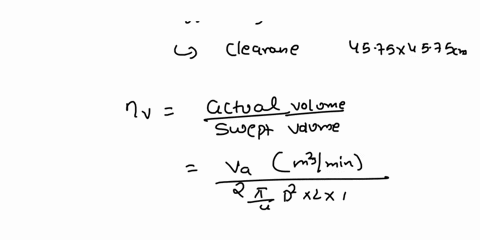 ↳ Clearane 45.75x45.75cm
ηv = actual volume / Swept volume
= Va (m³/min) / 2 π/4 D² x L x